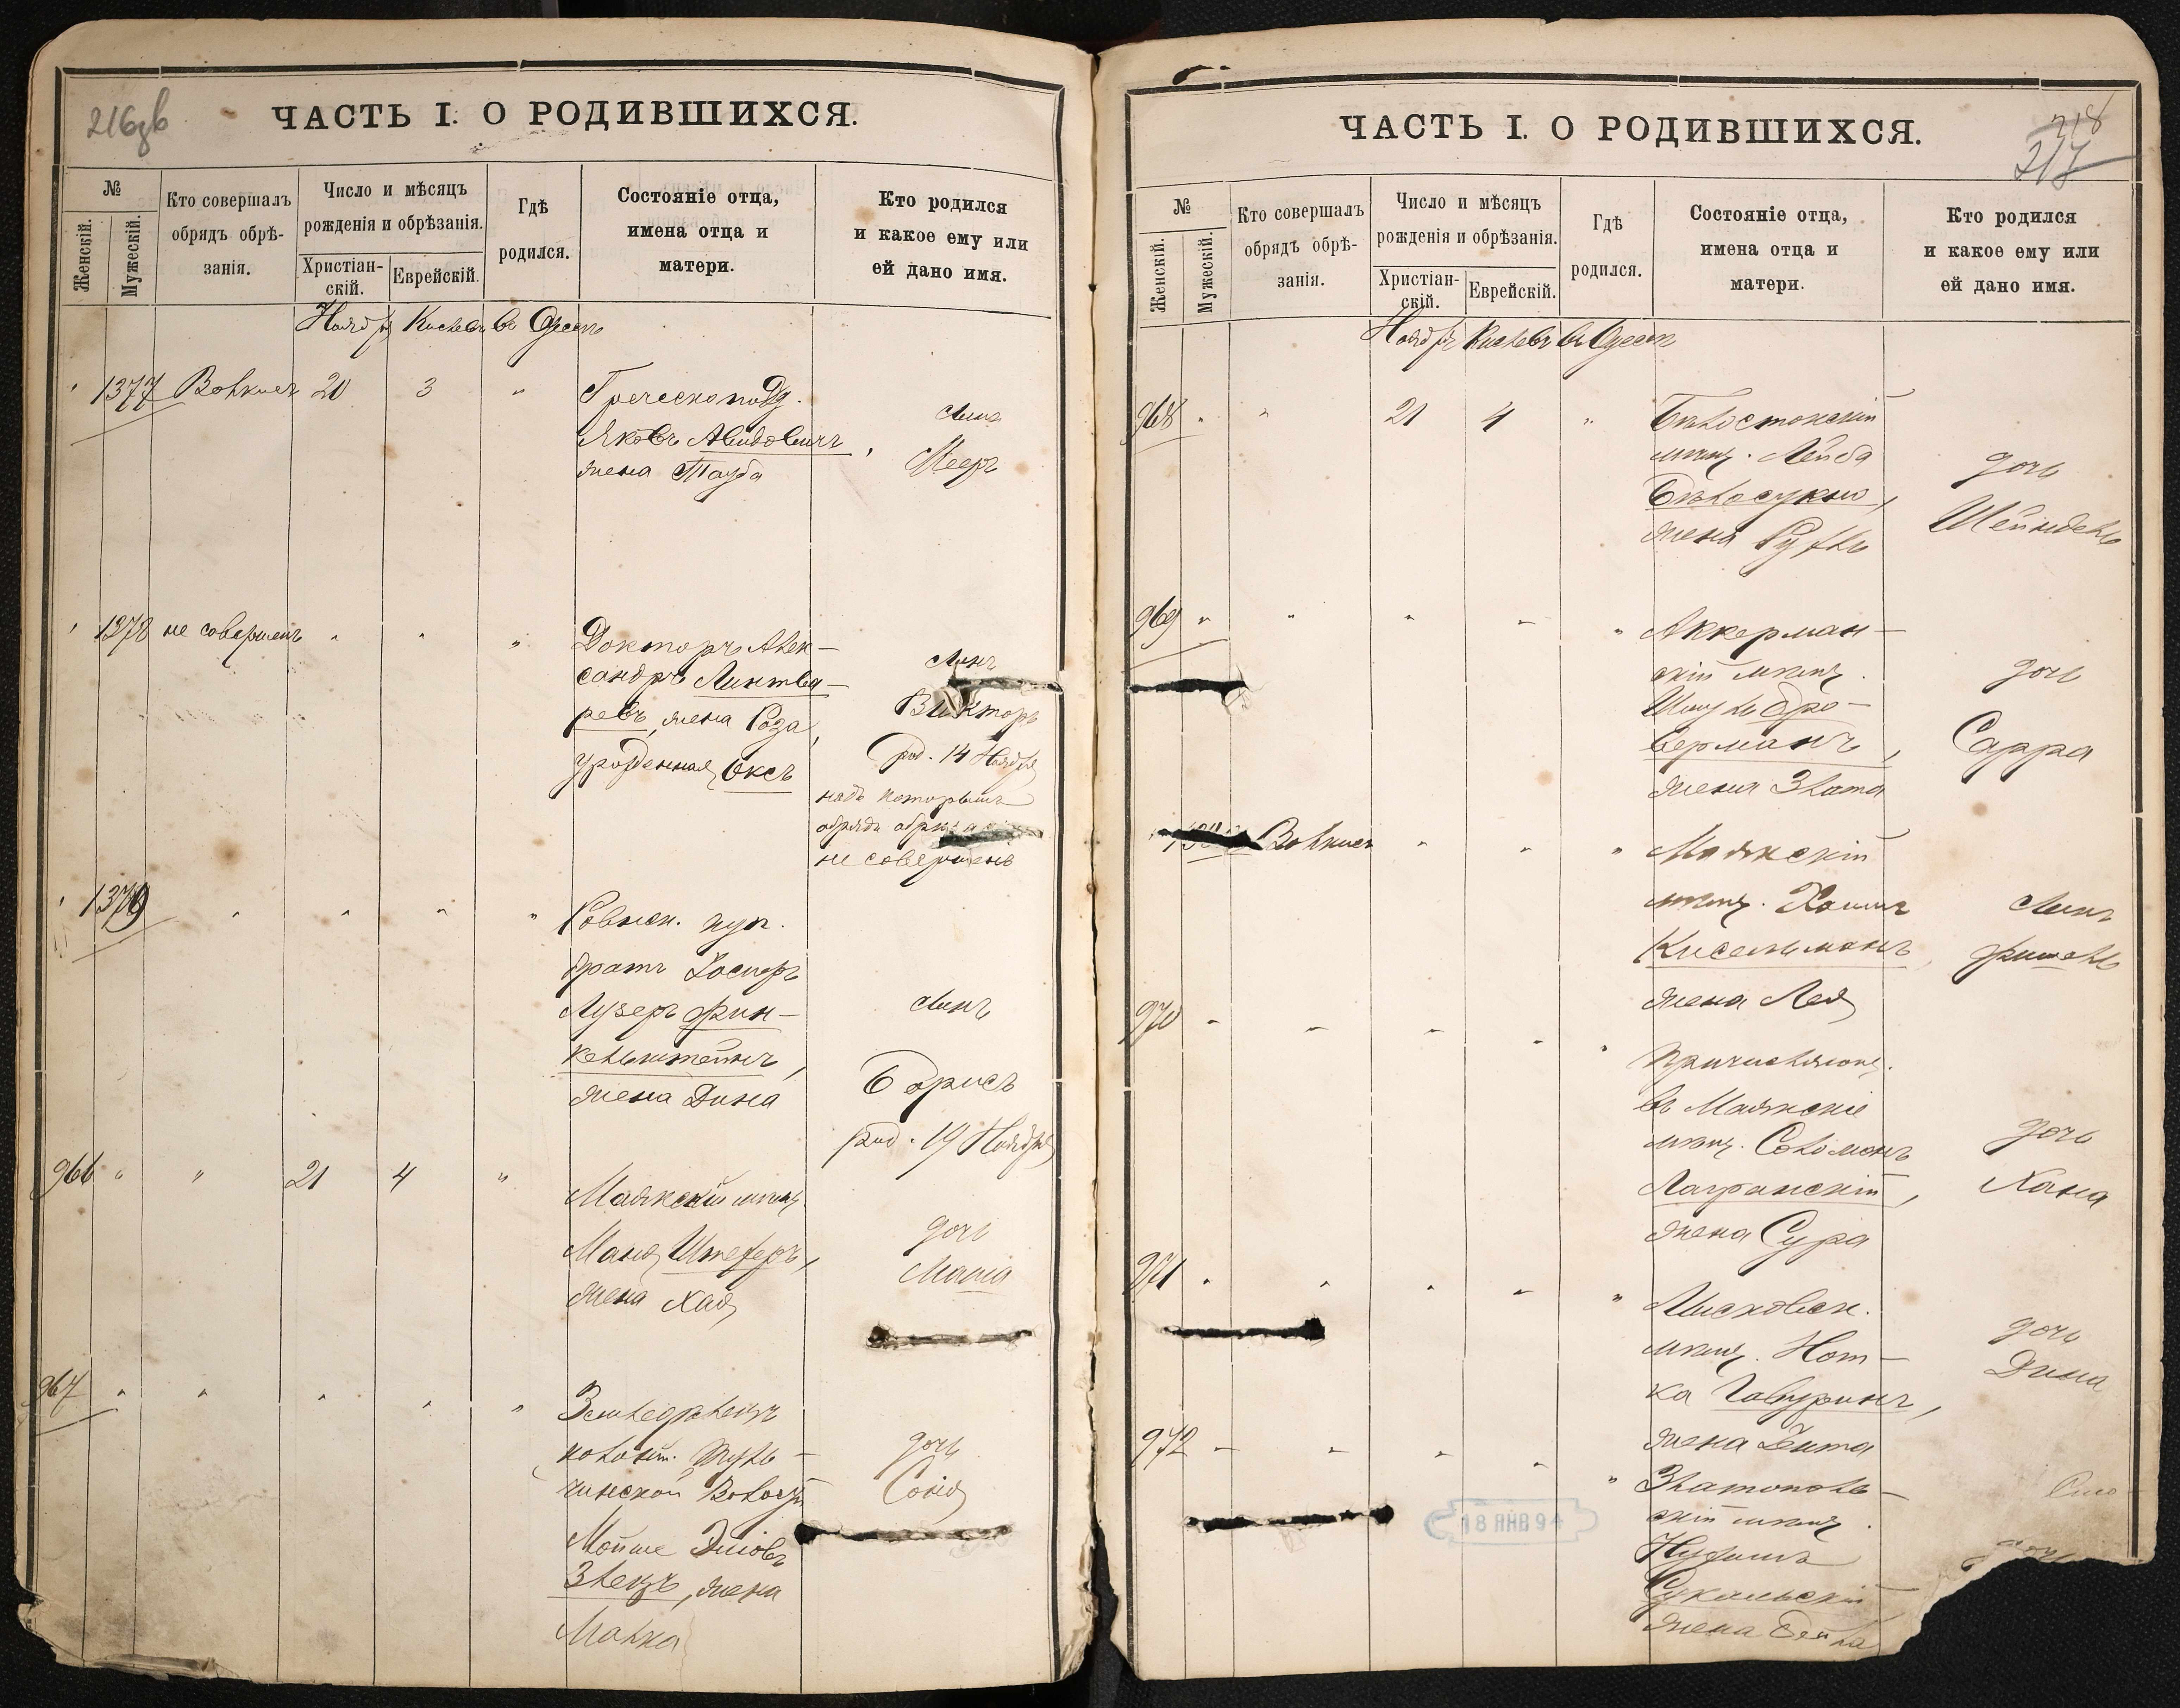 216об
ЧАСТЬ I. О РОДИВШИХСЯ.
№
Женскій.
Мужескій.
Кто совершалъ
обрядъ обрѣ-
занія.
Число и мѣсяцъ
рожденія и обрѣзанія.
Христіан-
скій.
Еврейскій.
Гдѣ
родился.
Состояніе отца,
имена отца и
матери.
Кто родился
и какое ему или
ей дано имя.
Ноябрь Кислевъ въ Одессѣ
1377 Волкисъ 20 3 " Греческоподд.
Яковъ Авидовичъ,
жена Тауба
Сынъ
Мееръ
1378 не совершенъ " " " Докторъ Алек-
сандръ Линтва-
ревъ, жена Роза,
урожденная Оксъ
Сынъ
Викторъ
род. 14 Ноября
надъ которымъ
обрядъ
не совершенъ
1379 " " " " Ровнен. куп.
братъ
Лузеръ Фин-
кельштейнъ,
жена Дина
Сынъ
Борисъ
род. 19 Ноября
966 " " 21 4 " Маякскій мѣщ.
Маня Штеферъ,
жена Хая
дочь
Маня
967 " " " " " Земледѣлецъ
колоніи
Волости
Мойше
Злецъ, жена
Малка
дочь
Соня
218
217
ЧАСТЬ I. О РОДИВШИХСЯ.
№
Женскій.
Мужескій.
Кто совершалъ
обрядъ обрѣ-
занія.
Число и мѣсяцъ
рожденія и обрѣзанія.
Христіан-
скій.
Еврейскій.
Гдѣ
родился.
Состояніе отца,
имена отца и
матери.
Кто родился
и какое ему или
ей дано имя.
Ноябрь Кислевъ въ Одессѣ
968 " " 21 4 " Бѣлостокскій
мѣщ. Лейба
Бѣлосукно,
жена Рухль
дочь
Шейндель
969 " " " " " Аккерман-
скій мѣщ.
Шмуль Бро-
верманъ,
жена Злата
дочь
Сарра
Волкисъ " " " Маякскій
мѣщ. Хаимъ
Кисельманъ,
жена Лея
Сынъ
Фишель
970 " " " " " Причисляющ.
въ Маякскіе
мѣщ. Соломонъ
жена Сура
дочь
Хана
971 " " " " "
мѣщ. Нот-
ка Гавуринъ,
жена Бита
дочь
Дина
972 " " " " " Златополь-
скій мѣщ.
Нухимъ
Сукальскій
жена Бейла
18 ЯНВ 94